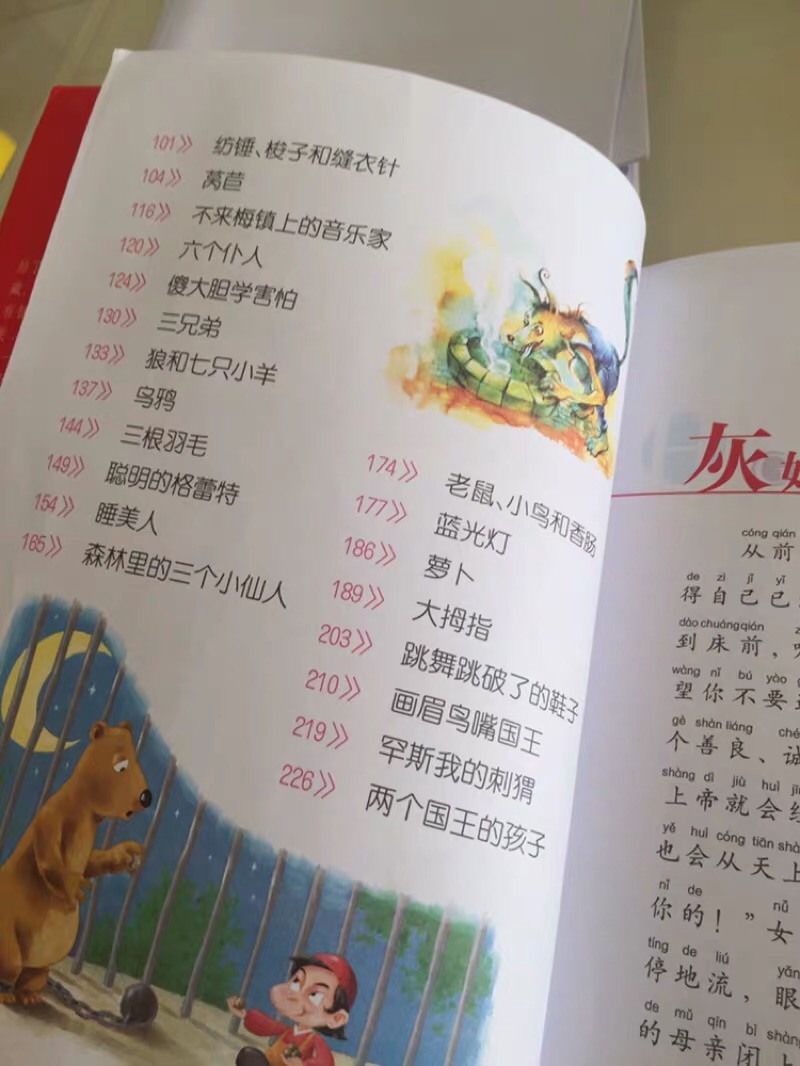 101》 纺锤、梭子和缝衣针
104》 莴苣
116》 不来梅镇上的音乐家
120》 六个仆人
124》 傻大胆学害怕
130》 三兄弟
133》 狼和七只小羊
137》 乌鸦
144》 三根羽毛
149》 聪明的格蕾特
154》 睡美人
165》 森林里的三个小仙人
174》 老鼠、小鸟和香肠
177》 蓝光灯
186》 萝卜
189》 大拇指
203》 跳舞跳破了的鞋子
210》 画眉鸟嘴国王
219》 罕斯我的刺猬
226》 两个国王的孩子
灰
cóng qián
从前
de zì jǐ yǐ
得自己已
dào chuáng qián
到床前，
wàng nǐ bú yào
望你不要
gè shàn liáng
个善良、诚
shàng dì jiù huì
上帝就会
yě huì cóng tiān shà
也会从天上
nǐ de nǚ
你的！”女
tíng de liú yǎn
停地流，眼
de mǔ qīn bì shàng
的母亲闭上